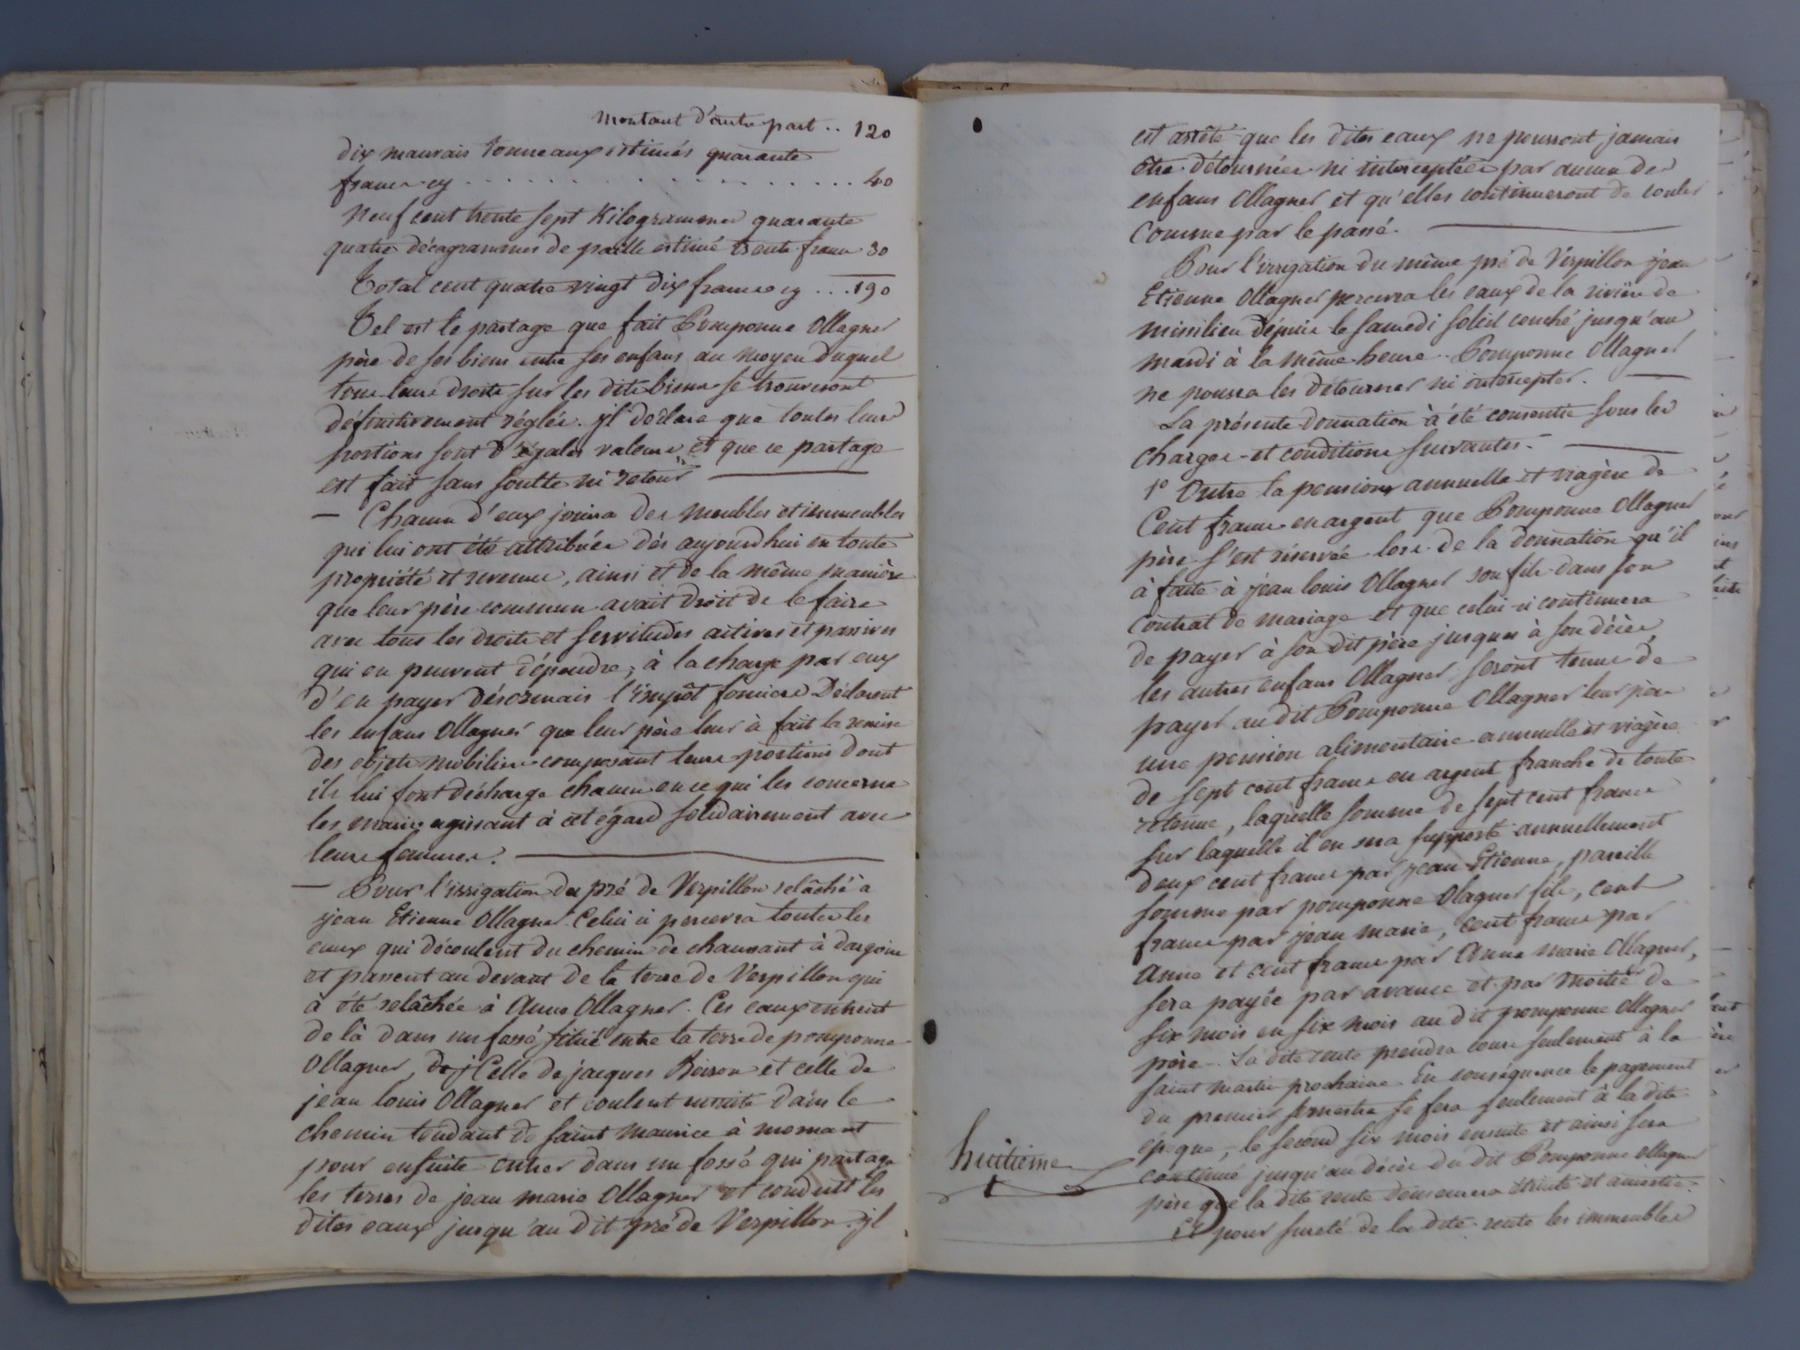 Montant d'autre part .. 120
dix mauvais tonneaux estimés quarante
francs cy . . . . . . . . . . . . 40
Neuf cent trente sept Kilogrammes quarante
quatre décagrammes de paille estimé trente francs 30
Total cent quatre vingt dix francs cy ... 190
Tel est le partage que fait Pomponne Ollagner
père de ses biens entre ses enfans au moyen duquel
tous leurs droits sur les dits biens se trouveront
définitivement réglés. jl déclare que toutes leurs
portions sont d'égales valeurs et que ce partage
est fait sans soulte ni retour
— Chacun d'eux jouira des meubles et immeubles
qui lui ont été attribués dès aujourd'hui en toute
propriété et revenus, ainsi et de la même manière
que leur père commun avait droit de le faire
avec tous les droits et servitudes actives et passives
qui en peuvent dépendre, à la charge par eux
d'en payer désormais l'impôt foncier Déclarent
les enfans Ollagner que leur père leur à fait la remise
des objets mobiliers composant leurs portions dont
ils lui font décharge chacun en ce qui les concerne
les maris agissant à cet égard solidairement avec
leurs femmes.
— Pour l'irrigation du pré de Verpillon relâché à
jean Etienne Ollagner. Celui ci percevra toutes les
eaux qui découlent du chemin de chaussant à dargoire
et passent au devant de la terre de Verpillon qui
à été relâchée à Anne Ollagner. Ces eaux entrent
de là dans un fossé situé entre la terre de pomponne
Ollagner, Celle de jacques Boiron et celle de
jean louis Ollagner et coulent ensuite dans le
chemin tendant de saint Maurice à mornant
pour ensuite entrer dans un fossé qui partage
les terres de jean marie Ollagner et conduit les
dites eaux jusqu'au dit pré de Verpillon. jl
est arrêté que les dites eaux ne pourront jamais
être détournées ni interceptées par aucun des
enfans Ollagner et qu'elles continueront de couler
Comme par le passé.
Pour l'irrigation du même pré de Verpillon jean
Etienne Ollagner percevra les eaux de la rivière de
missilieu depuis le samedi soleil couché jusqu'au
mardi à la même heure. Pomponne Ollagner
ne pourra les détourner ni intercepter.
La présente donnation à été consentie sous les
charges et conditions suivantes.
1° Outre la pension annuelle et viagère de
Cent francs en argent que Pomponne Ollagner
père s'est réservée lors de la donnation qu'il
à faite à jean louis Ollagner son fils dans son
Contrat de mariage et que celui-ci continuera
de payer à son dit père jusques à son décès,
les autres enfans Ollagner seront tenus de
payer au dit Pomponne Ollagner leur père
une pension alimentaire annuelle et viagère
de sept cent francs en argent franche de toute
retenue, laquelle somme de sept cent francs
sur laquelle il en sera supporté annuellement
deux cent francs par jean Etienne, pareille
somme par pomponne Olagner fils, cent
francs par jean marie, cent francs par
Anne et cent francs par Anne marie Ollagner,
sera payée par avance et par moitié de
six mois en six mois au dit pomponne Ollagner
père. La dite rente prendra cours seulement à la
saint martin prochaine En conséquence le payement
du premier semestre se fera seulement à la dite
époque, le second six mois ensuite et ainsi sera
continué jusqu'au décès du dit Pomponne Ollagner
père que la dite rente demeurera éteinte et amortie.
huitième
Et pour sureté de la dite rente les immeubles